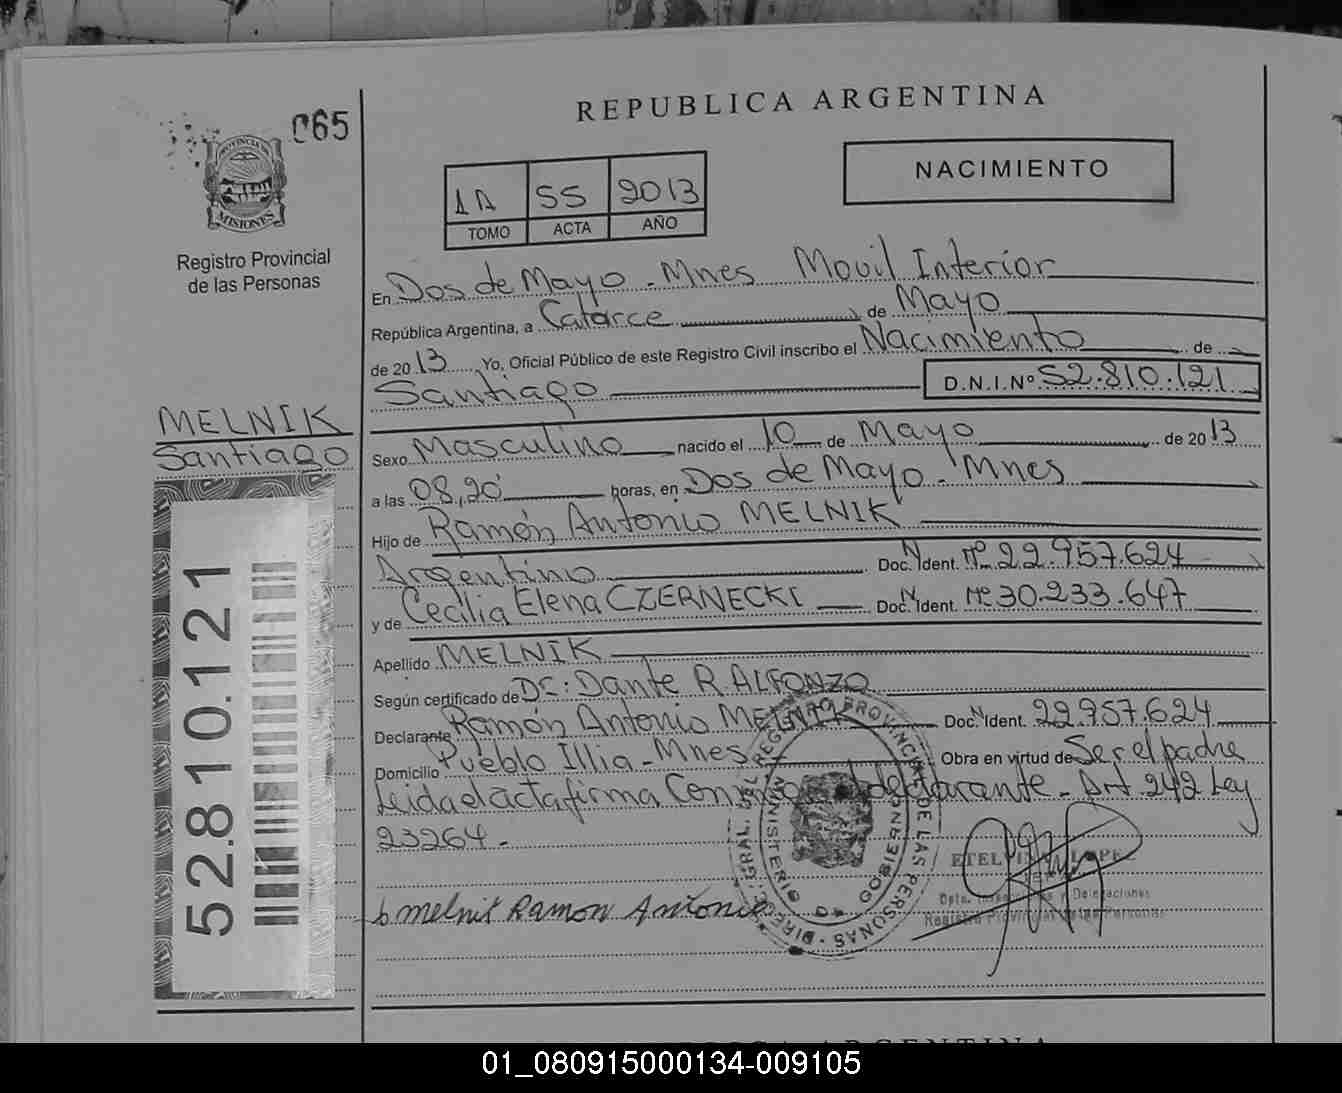 REPUBLICA ARGENTINA
065
PROVINCIA DE MISIONES
Registro Provincial
de las Personas
NACIMIENTO
1A 55 2013
TOMO ACTA AÑO
En Dos de Mayo - Mnes Movil Interior
República Argentina, a Catorce de Mayo
de 2013 Yo, Oficial Público de este Registro Civil inscribo el Nacimiento de
Santiago D.N.I.Nº 52.810.121
MELNIK
Santiago
Sexo Masculino nacido el 10 de Mayo de 2013
a las 08,20 horas, en Dos de Mayo - Mnes
Hijo de Ramón Antonio MELNIK
Argentino Doc. N Ident. Nº 22.957.624
y de Cecilia Elena CZERNECKI Doc. N Ident. Nº 30.233.647
Apellido MELNIK
Según certificado de Dr: Dante R ALFONZO
Declarante Ramón Antonio MELNIK Doc. N Ident. 22.957.624
Domicilio Pueblo Illia - Mnes Obra en virtud de Ser el padre
Leida el acta firma Conmigo el declarante - Art. 242 Ley
23264 -
52.810.121
Melnik Ramon Antonio
DIREC. GRAL. DEL REGISTRO PROVINCIAL DE LAS PERSONAS
MINISTERIO DE GOBIERNO
ETELVINA LOPEZ
Dpto. y Delegaciones
Registro Provincial de las Personas
REPUBLICA ARGENTINA
01_080915000134-009105